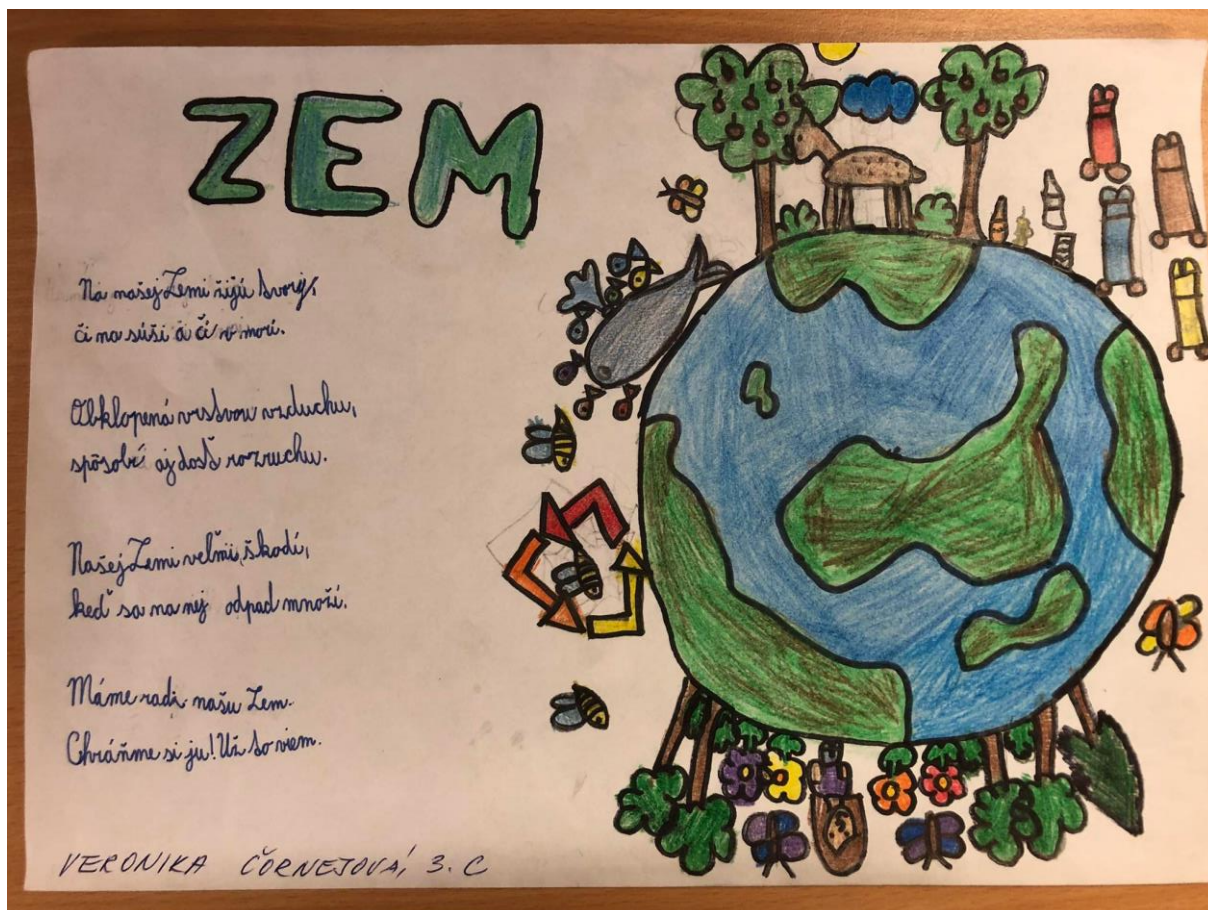 ZEM
Na našej Zemi žijú tvory,
či na súši a či v mori.
Obklopená vrstvou vzduchu,
spôsobí aj dosť rozruchu.
Našej Zemi veľmi škodí,
keď sa na nej odpad množí.
Máme radi našu Zem.
Chráňme si ju! Už to viem.
VERONIKA ČORNEJOVÁ, 3. C